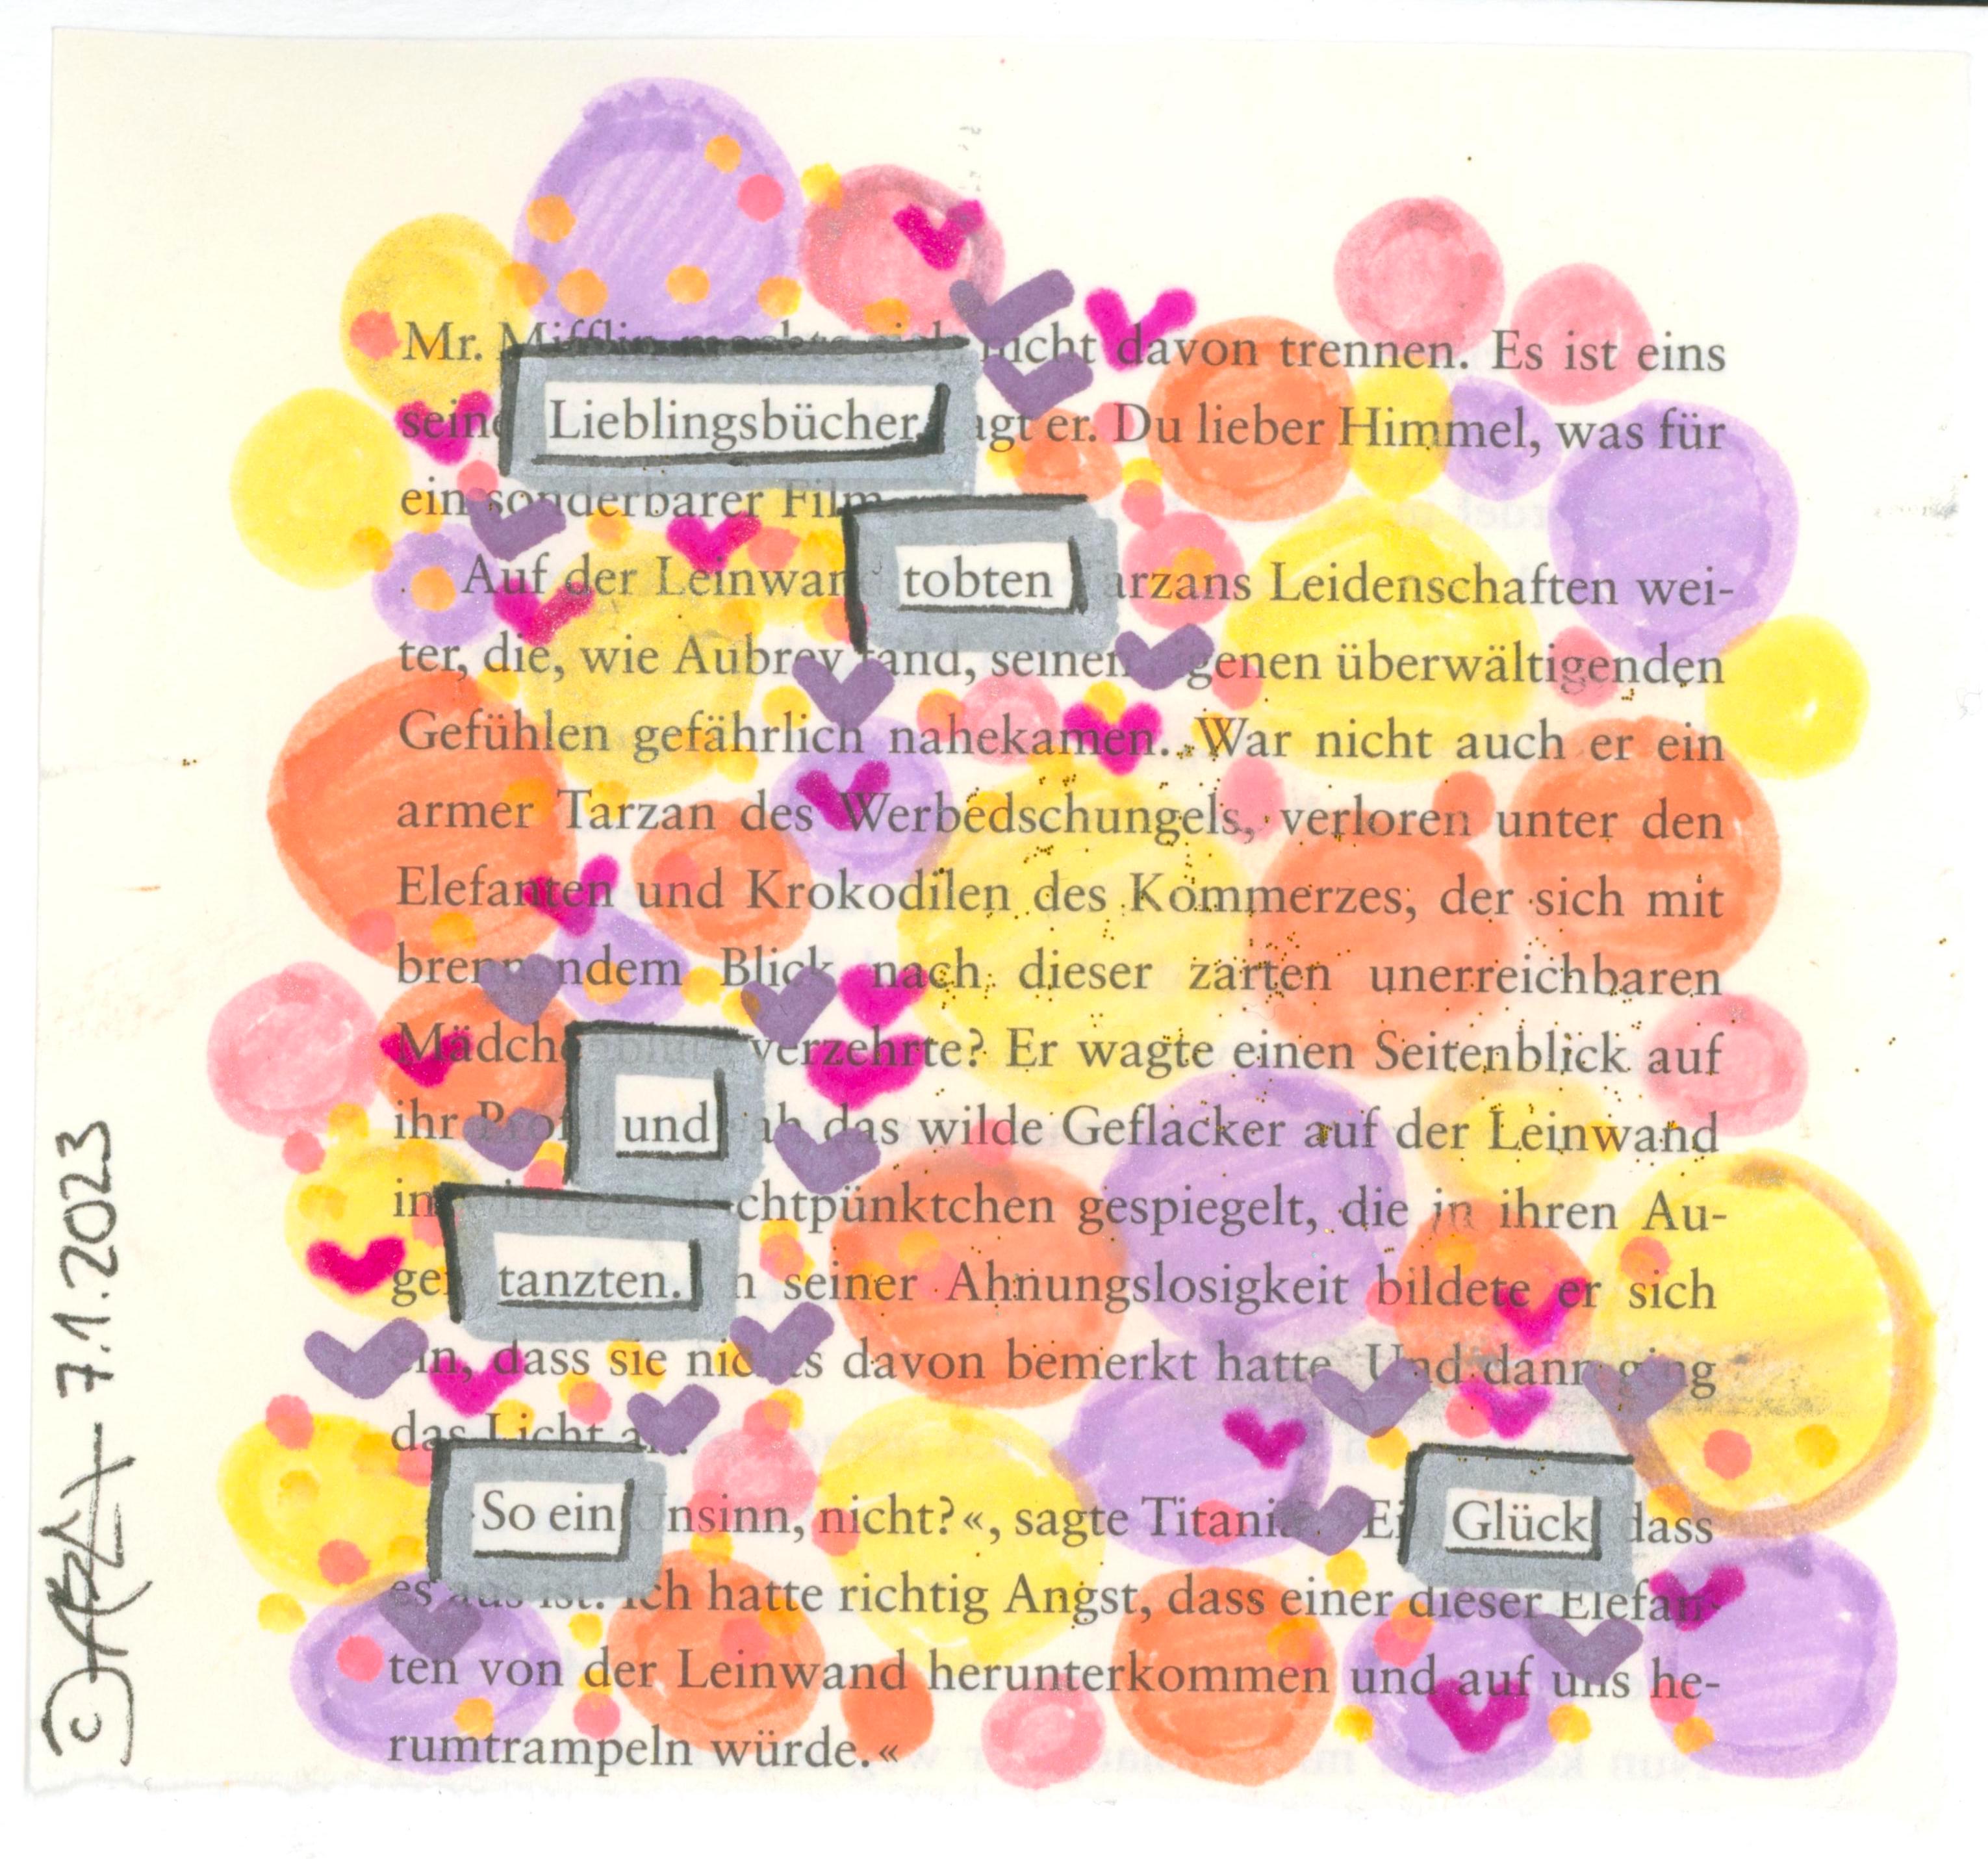 Mr. Mifflin mochte sich nicht davon trennen. Es ist eins
seine Lieblingsbücher, agt er. Du lieber Himmel, was für
ein sonderbarer Film
Auf der Leinwan tobten arzans Leidenschaften wei-
ter, die, wie Aubrey fand, seinen genen überwältigenden
Gefühlen gefährlich nahekamen. War nicht auch er ein
armer Tarzan des Werbedschungels, verloren unter den
Elefanten und Krokodilen des Kommerzes, der sich mit
brennendem Blick nach dieser zarten unerreichbaren
Mädche verzehrte? Er wagte einen Seitenblick auf
ihr Prof und ah das wilde Geflacker auf der Leinwand
in chtpünktchen gespiegelt, die in ihren Au-
gen tanzten. n seiner Ahnungslosigkeit bildete er sich
ein, dass sie nichts davon bemerkt hatte. Und dann ging
das Licht an.
So ein nsinn, nicht?«, sagte Titania. Ei Glück dass
es aus ist. Ich hatte richtig Angst, dass einer dieser Elefan-
ten von der Leinwand herunterkommen und auf uns he-
rumtrampeln würde.«
7.1.2023